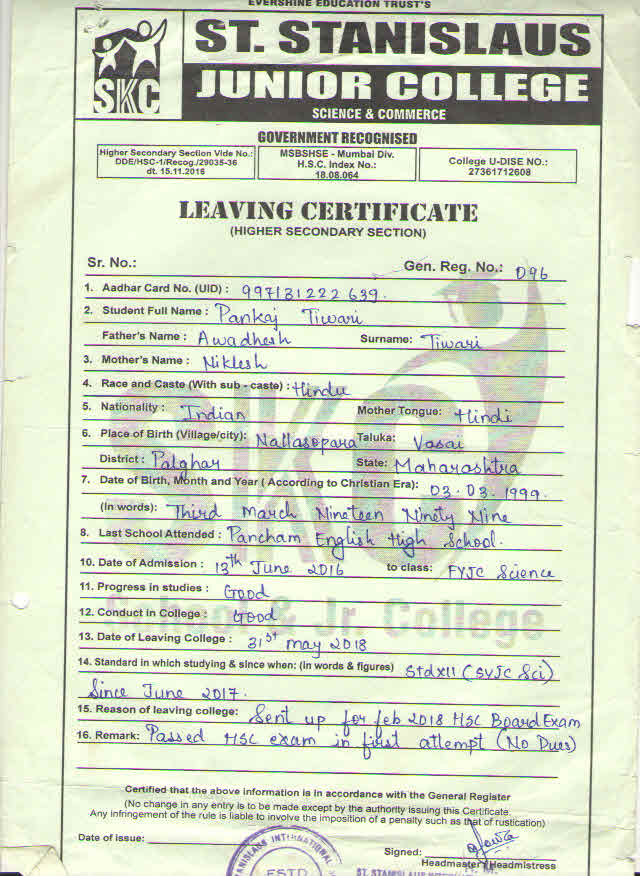 EVERSHINE EDUCATION TRUST'S
SKC
ST. STANISLAUS
JUNIOR COLLEGE
SCIENCE & COMMERCE
GOVERNMENT RECOGNISED
Higher Secondary Section Vide No.:
DDE/HSC-1/Recog./29035-36
dt. 15.11.2016
MSBSHSE - Mumbai Div.
H.S.C. Index No.:
18.08.064
College U-DISE NO.:
27361712608
LEAVING CERTIFICATE
(HIGHER SECONDARY SECTION)
Sr. No.: Gen. Reg. No.: 096
1. Aadhar Card No. (UID) : 997131222639.
2. Student Full Name : Pankaj Tiwari
Father's Name : Awadhesh Surname: Tiwari
3. Mother's Name : Niklesh
4. Race and Caste (With sub - caste) : Hindu
5. Nationality : Indian Mother Tongue: Hindi
6. Place of Birth (Village/city): Nallasopara Taluka: Vasai
District : Palghar State: Maharashtra
7. Date of Birth, Month and Year ( According to Christian Era): 03.03.1999.
(In words): Third March Nineteen Ninety Nine
8. Last School Attended : Pancham English High School.
10. Date of Admission : 13th June 2016 to class: FYJC Science
11. Progress in studies : Good
12. Conduct in College : Good
13. Date of Leaving College : 31st may 2018
14. Standard in which studying & since when: (in words & figures) Std XII (SYJC Sci)
Since June 2017.
15. Reason of leaving college: Sent up for feb 2018 HSC Board Exam
16. Remark: Passed HSC exam in first attempt (No Dues)
SKC
School & Jr. College
Certified that the above information is in accordance with the General Register
(No change in any entry is to be made except by the authority issuing this Certificate.
Any infringement of the rule is liable to involve the imposition of a penalty such as that of rustication)
Date of issue:
Signed:
Headmaster / Headmistress
STANISLAUS INTERNATIONAL
ESTD
ST. STANISLAUS